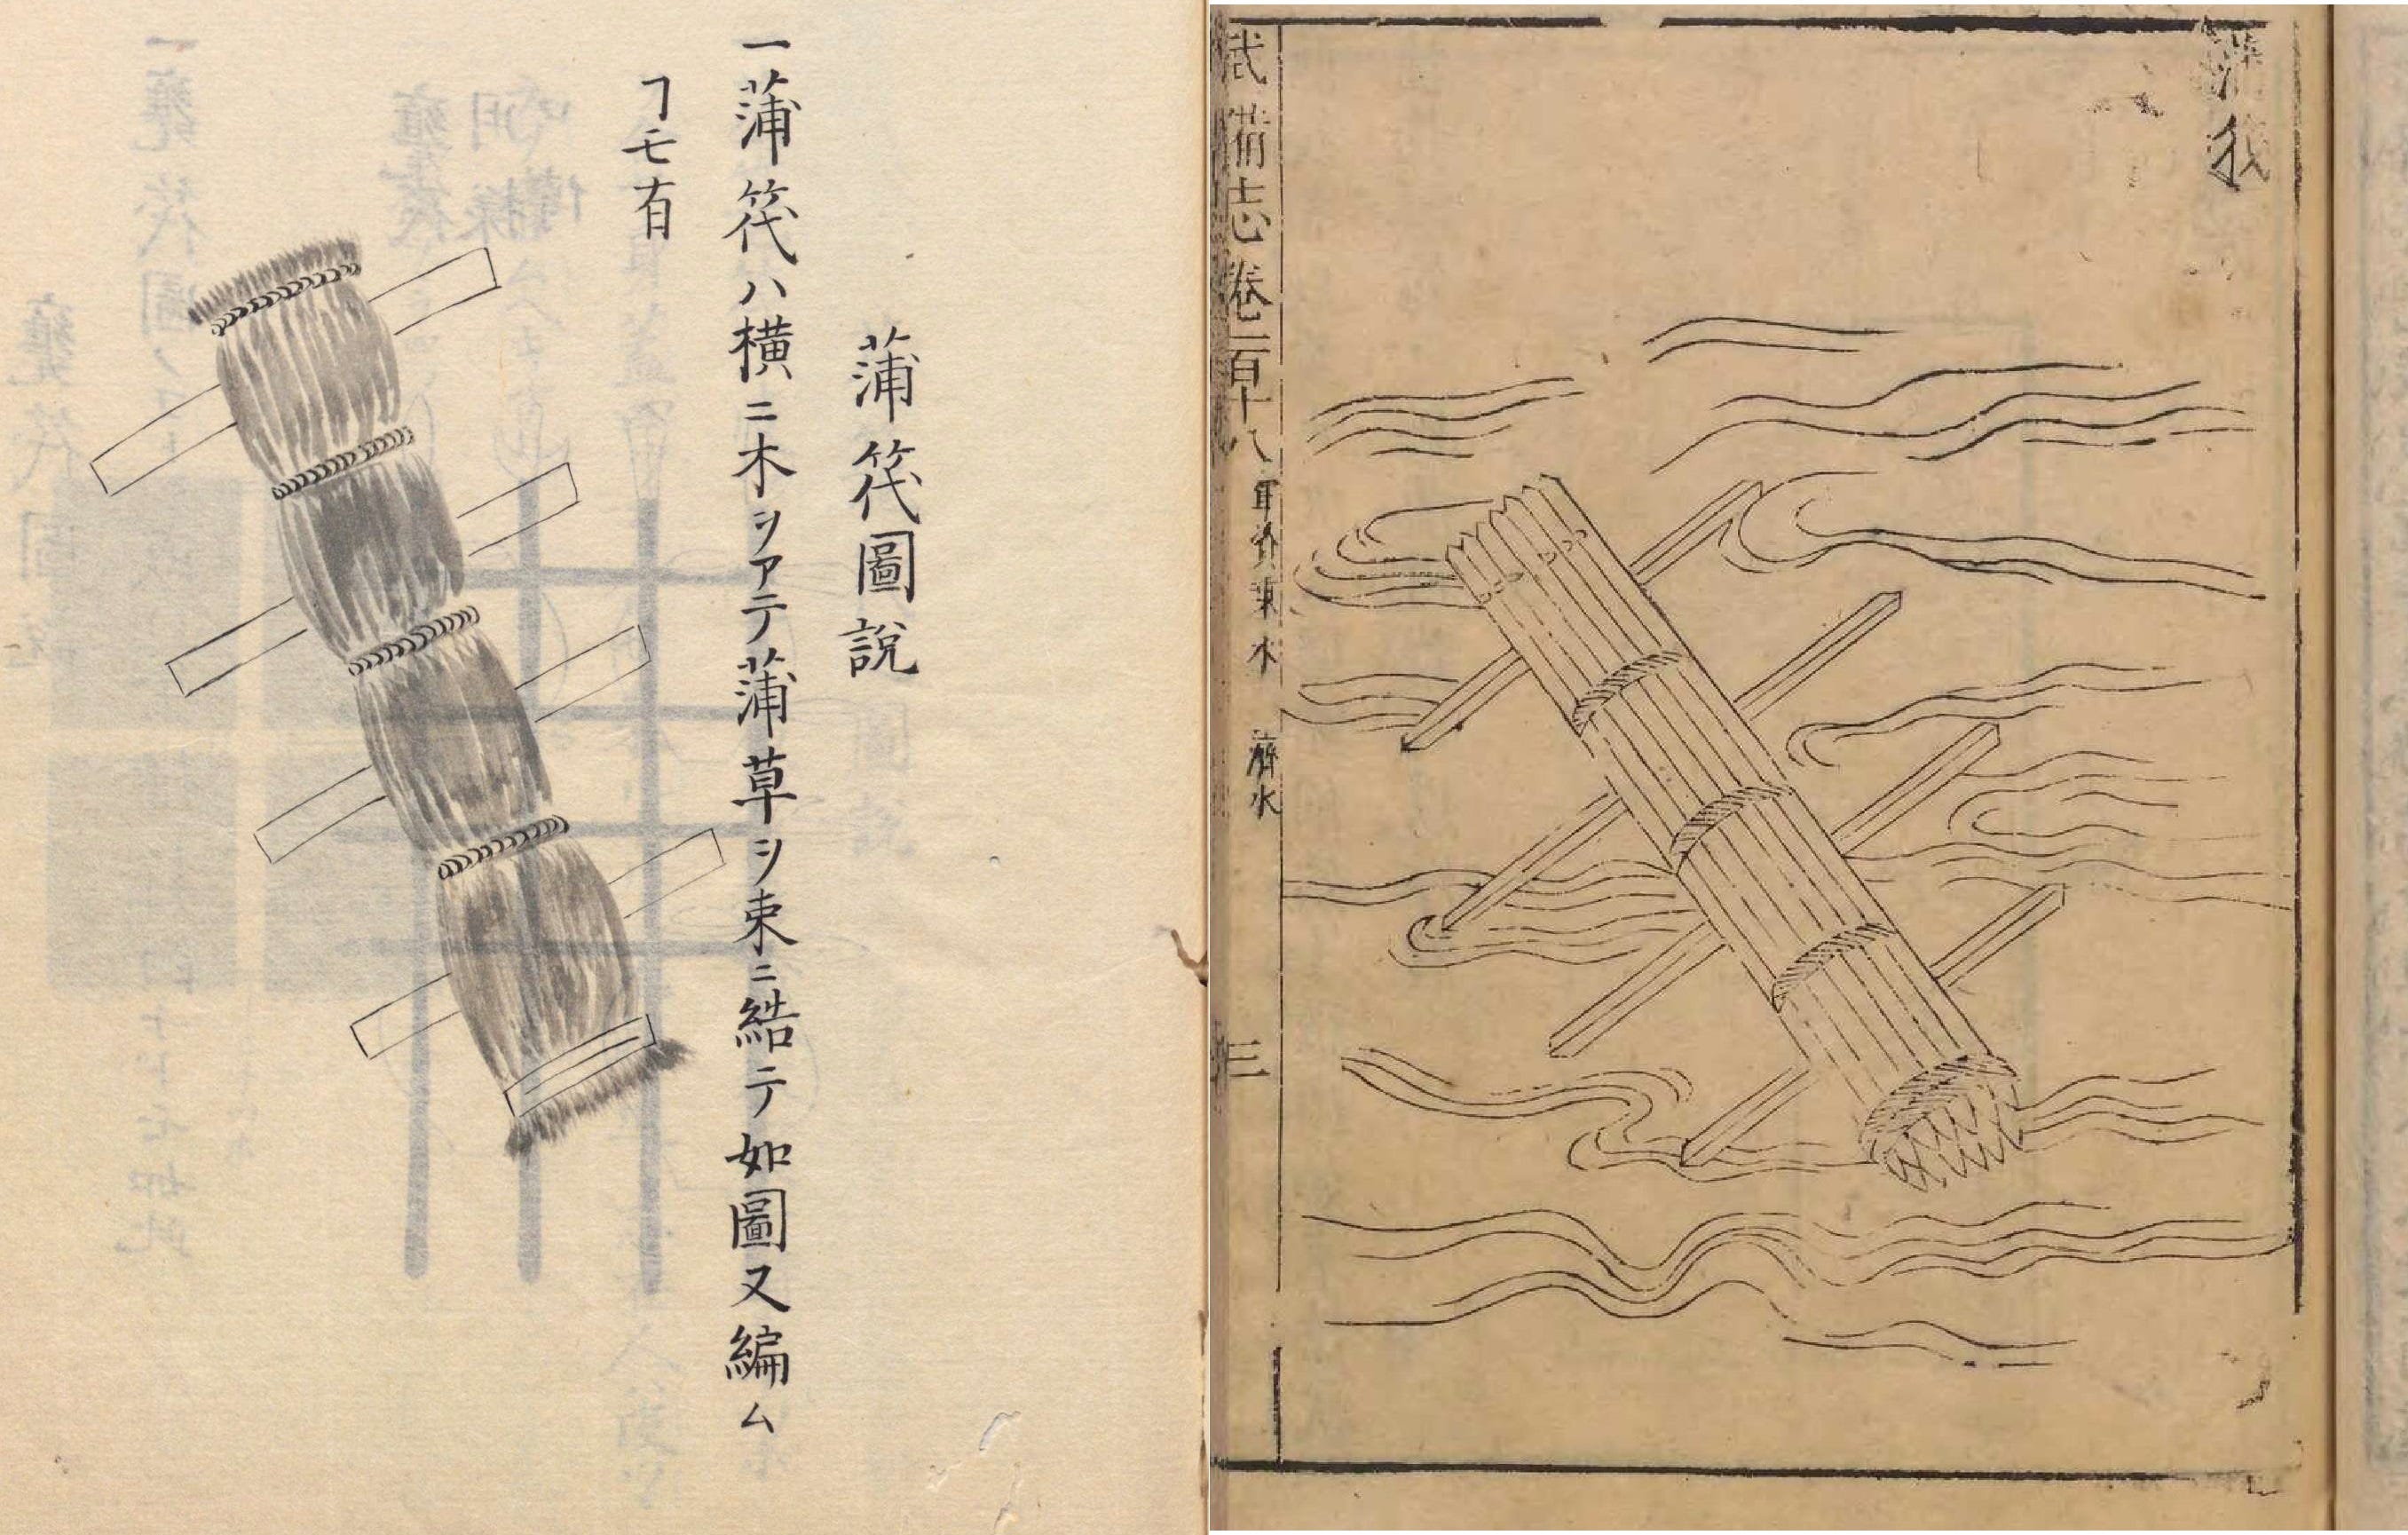 蒲筏圖説
一蒲筏ハ橫ニ木ヲアテ蒲草ヲ束ニ結テ如圖又編ム
ヿモ有
蒲筏
武備志卷一百十八 軍資乘 水 濟水 三